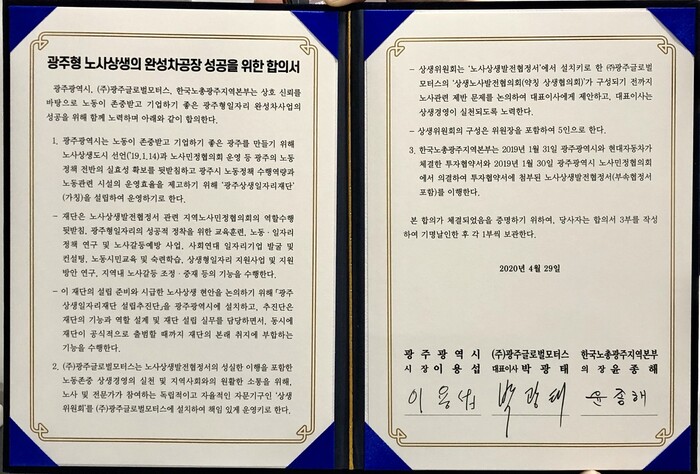 광주형 노사상생의 완성차공장 성공을 위한 합의서
광주광역시, (주)광주글로벌모터스, 한국노총광주지역본부는 상호 신뢰를
바탕으로 노동이 존중받고 기업하기 좋은 광주형일자리 완성차사업의
성공을 위해 함께 노력하며 아래와 같이 합의한다.
1. 광주광역시는 노동이 존중받고 기업하기 좋은 광주를 만들기 위해
노사상생도시 선언('19.1.14)과 노사민정협의회 운영 등 광주의 노동
정책 전반의 실효성 확보를 뒷받침하고 광주시 노동정책 수행역량과
노동관련 시설의 운영효율을 제고하기 위해 「광주상생일자리재단」
(가칭)을 설립하여 운영하기로 한다.
- 재단은 노사상생발전협정서 관련 지역노사민정협의회의 역할수행
뒷받침, 광주형일자리의 성공적 정착을 위한 교육훈련, 노동·일자리
정책 연구 및 노사갈등예방 사업, 사회연대 일자리기업 발굴 및
컨설팅, 노동시민교육 및 숙련학습, 상생형일자리 지원사업 및 지원
방안 연구, 지역내 노사갈등 조정·중재 등의 기능을 수행한다.
- 이 재단의 설립 준비와 시급한 노사상생 현안을 논의하기 위해 「광주
상생일자리재단 설립추진단」을 광주광역시에 설치하고, 추진단은
재단의 기능과 역할 설계 및 재단 설립 실무를 담당하면서, 동시에
재단이 공식적으로 출범할 때까지 재단의 본래 취지에 부합하는
기능을 수행한다.
2. (주)광주글로벌모터스는 노사상생발전협정서의 성실한 이행을 포함한
노동존중 상생경영의 실천 및 지역사회와의 원활한 소통을 위해,
노사 및 전문가가 참여하는 독립적이고 자율적인 자문기구인 '상생
위원회'를 (주)광주글로벌모터스에 설치하여 책임 있게 운영키로 한다.
- 상생위원회는 '노사상생발전협정서'에서 설치키로 한 ㈜광주글로벌
모터스의 '상생노사발전협의회(약칭 상생협의회)'가 구성되기 전까지
노사관련 제반 문제를 논의하여 대표이사에게 제안하고, 대표이사는
상생경영이 실천되도록 노력한다.
- 상생위원회의 구성은 위원장을 포함하여 5인으로 한다.
3. 한국노총광주지역본부는 2019년 1월 31일 광주광역시와 현대자동차가
체결한 투자협약서와 2019년 1월 30일 광주광역시 노사민정협의회
에서 의결하여 투자협약서에 첨부된 노사상생발전협정서(부속협정서
포함)를 이행한다.
본 합의가 체결되었음을 증명하기 위하여, 당사자는 합의서 3부를 작성
하여 기명날인한 후 각 1부씩 보관한다.
2020년 4월 29일
광주광역시 (주)광주글로벌모터스 한국노총광주지역본부
시장 이용섭 대표이사 박광태 의장 윤종해
이용섭 박광태 윤종해